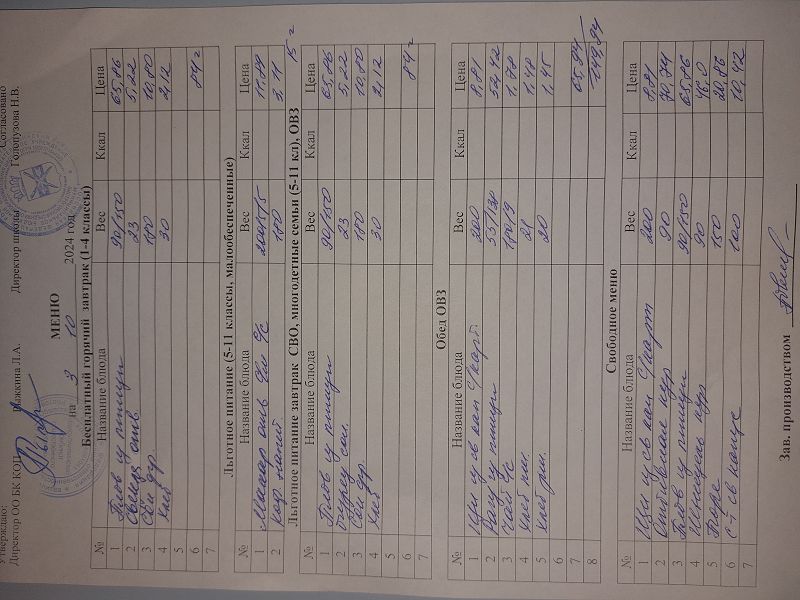 Утверждаю:
Согласовано
Директор ОО БК КОП Пыжкина Л.А. Директор школы Голопузова Н.В.
МЕНЮ
на 3 10 2024 год
Бесплатный горячий завтрак (1-4 классы)
№ Название блюда Вес Ккал Цена
1 Плов из птицы 90/150 65,86
2 Свекла отв 23 5,22
3 Сок др. 180 10,80
4 Хлеб 30 2,12
5
6 84 г
7
Льготное питание (5-11 классы, малообеспеченные)
№ Название блюда Вес Ккал Цена
1 Макар отв 11,89
2 напит 180 3,11
15 г
Льготное питание завтрак СВО, многодетные семьи (5-11 кл), ОВЗ
№ Название блюда Вес Ккал Цена
1 Плов из птицы 90/150 65,86
2 Огурец сол. 23 5,22
3 Сок др. 180 10,80
4 Хлеб 30 2,12
5
6 84 г
7
Обед ОВЗ
№ Название блюда Вес Ккал Цена
1 Щи из св кап с/карт 200 8,81
2 Рагу из птицы 52,42
3 Чай с/с 1,78
4 Хлеб пш. 28 1,48
5 хлеб рж. 20 1,45
6
7 65,94
8 149,94
Свободное меню
№ Название блюда Вес Ккал Цена
1 Щи из св кап с/карт 200 8,81
2 Отбивная кур 90 70,74
3 Плов из птицы 90/150 65,86
4 Шницель кур 90
5 Пюре 150 20,86
6 С-т св капус 100 10,42
7
Зав. производством